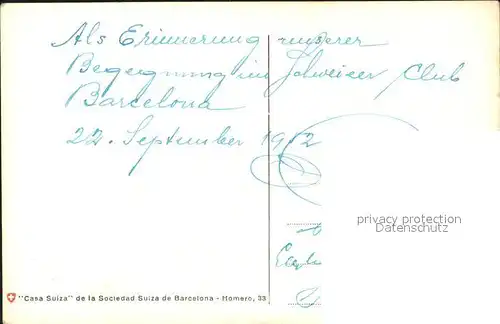 Als Erinnerung unserer
Begegnung im Schweizer Club
Barcelona
22. September 1952
privacy protection
Datenschutz
"Casa Suiza" de la Sociedad Suiza de Barcelona - Homero, 33